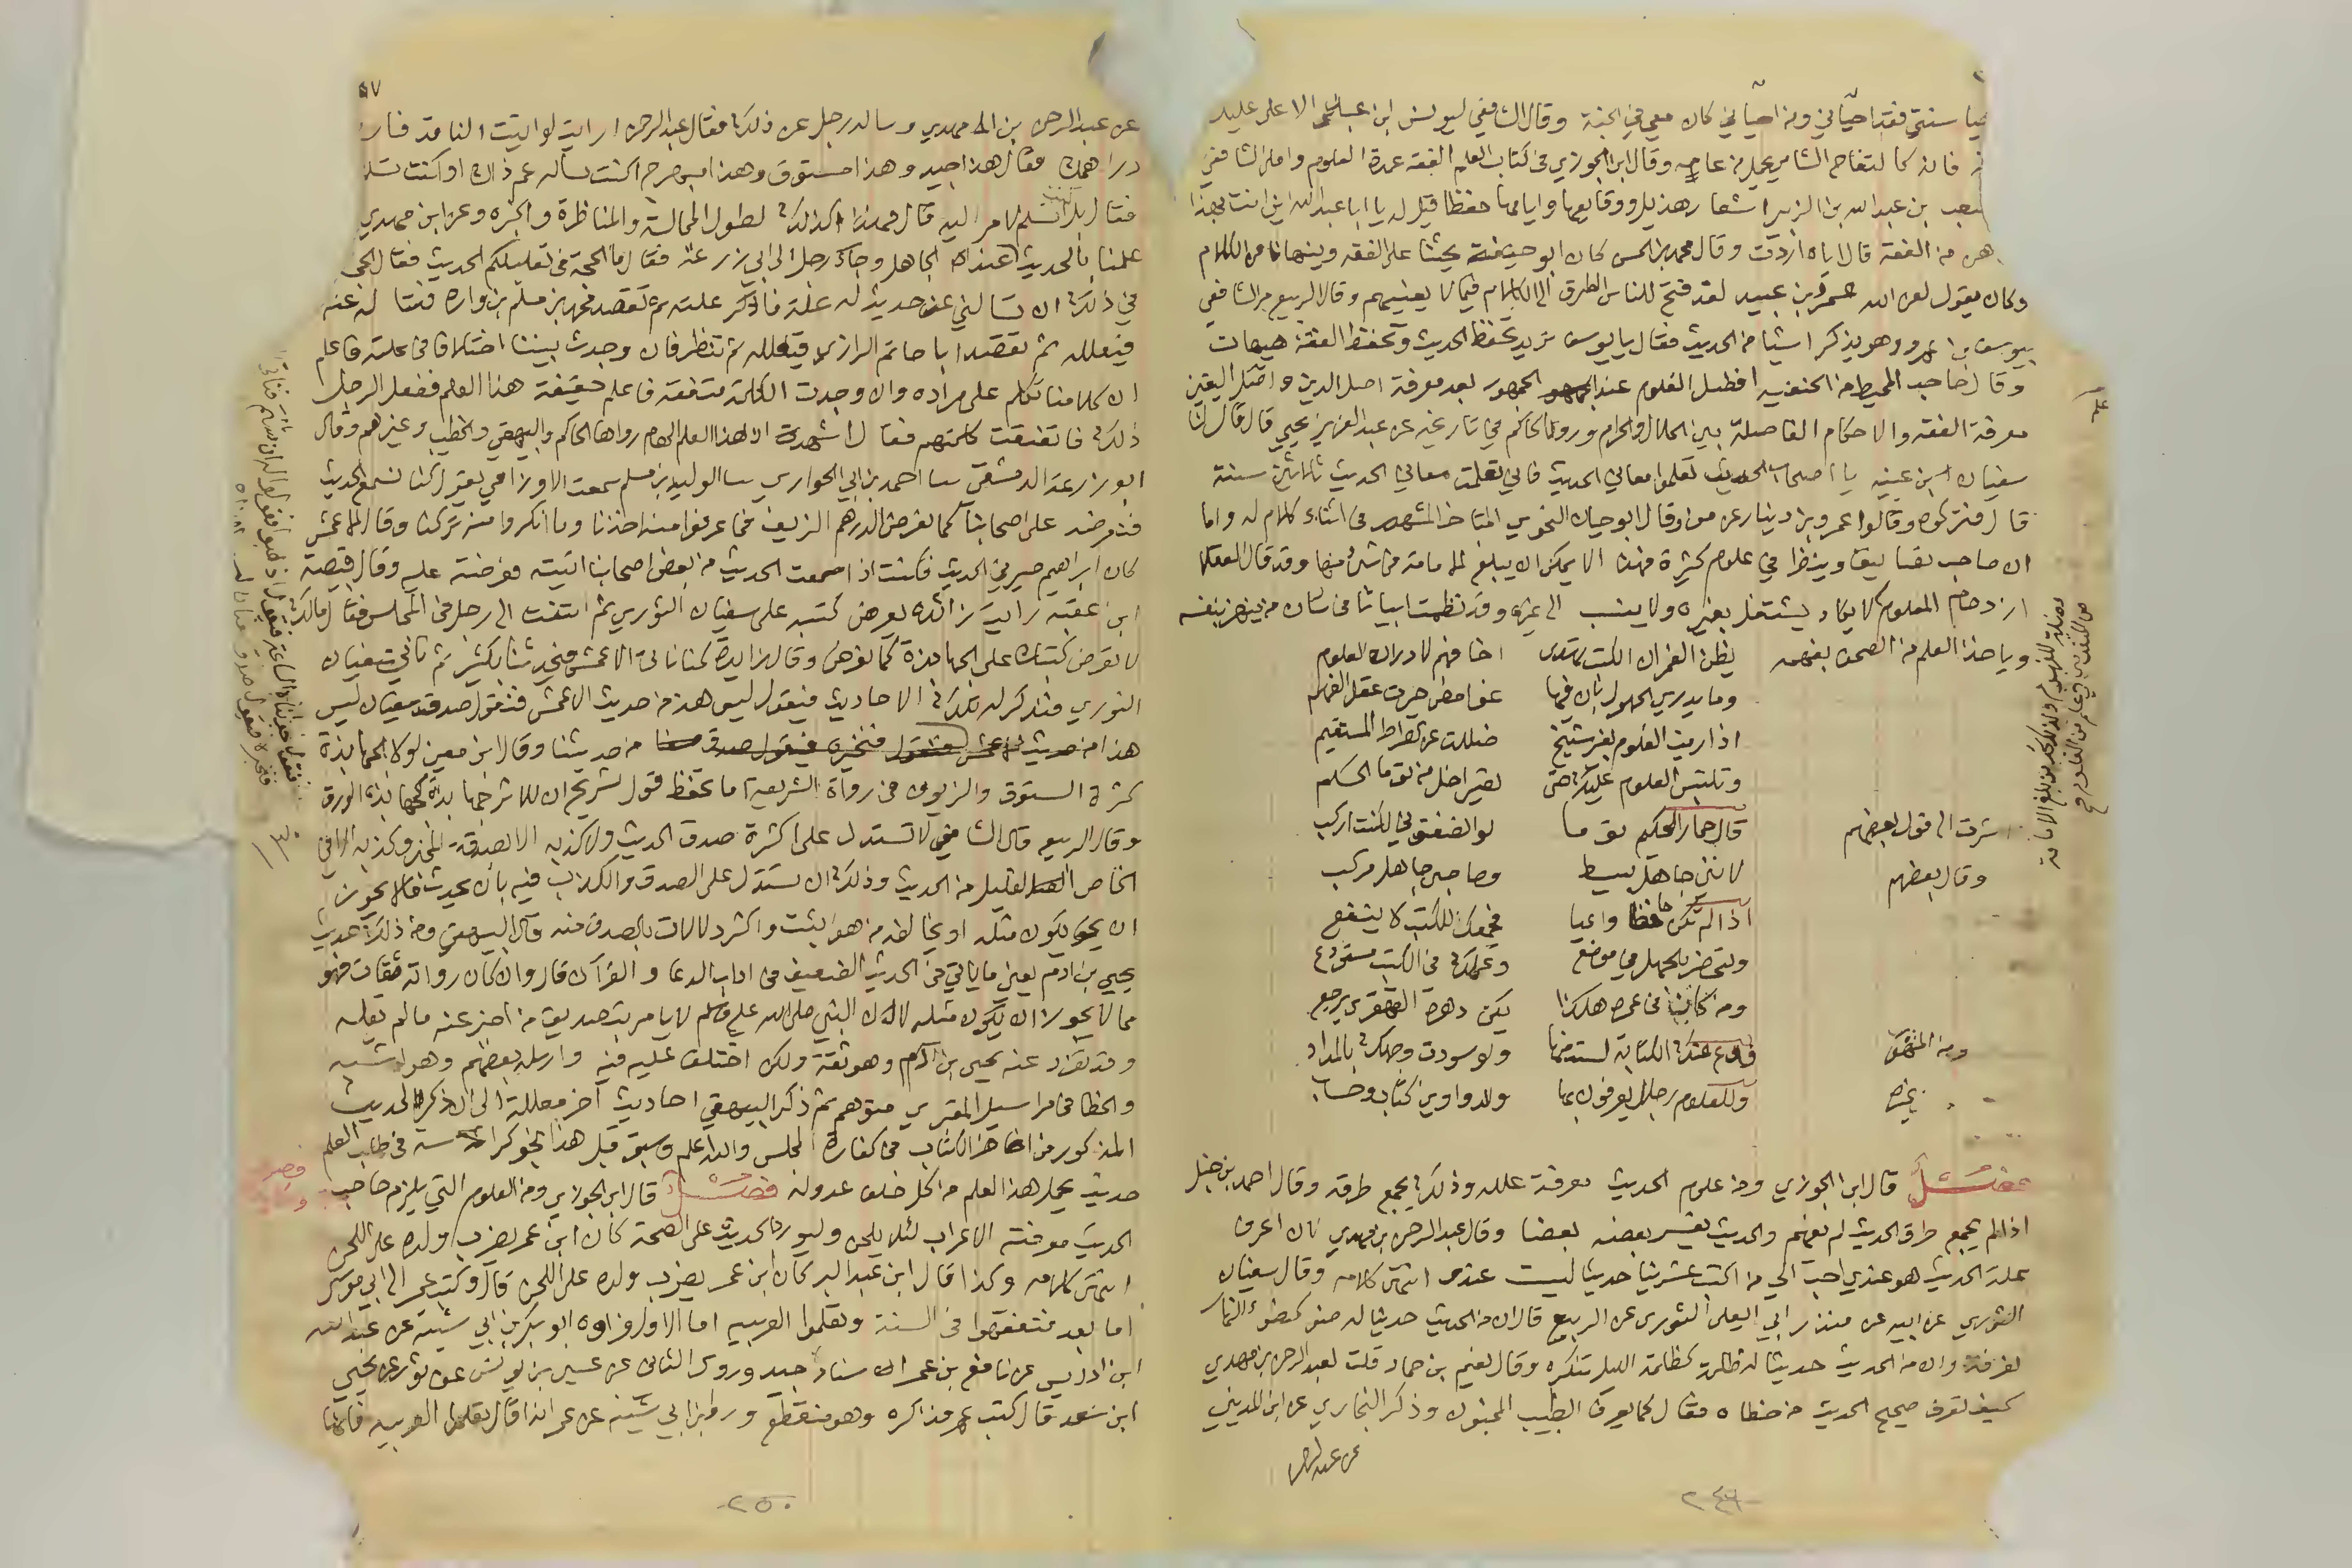 حيا سنتي فقد احياني ومن احياني كان معي في الجنة وقال الشافعي ليونس ابن عبد الاعلى عليك
فانه كالتفاح الشامي يحمل من عامه وقال ابن الجوزي في كتاب العلم الفقه عمدة العلوم واملى الشافعي
مصعب بن عبد الله بن الزبير اشعار هذيل ووقايعها وايامها حفظا قيل له يا ابا عبد الله اين انت بهذا
هن من الفقه قال اياه اردت وقال محمد بن الحسن كان ابو حنيفة يحثنا على الفقه وينهانا عن الكلام
وكان يقول لعن الله عمرو بن عبيد لقد فتح للناس الطرق الى الكلام فيما لا يعنيهم وقال الربيع مر الشافعي
بيوسف بن عمرو وهو يذكر اشيا من الحديث فقال يا يوسف تريد تحفظ الحديث وتحفظ الفقه هيهات
وقال صاحب المحيط من الحنفيه افضل العلوم عند الجمهور بعد معرفة اصل الدين واصل اليقين
معرفة الفقه والاحكام الفاصلة بين الحلال والحرام وروى الحاكم في تاريخه عن عبد العزيز يحيى قال قال لنا
سفيان ابن عيينه يا اصحاب الحديث تعلموا معاني الحديث فاني تعلمت معاني الحديث ثلاثين سنة
قال فتركوه وقالوا عمرو بن دينار عن من وقال ابو حيان النحوي المتاخر المشهور في اثناء كلام له واما
ان صاحب تصانيف وينظر في علوم كثيرة فهذا لا يمكن ان يبلغ الامامة في شيء منها وقد قال العقلا
ازدحام العلوم لا يكاد يشتغل بغيره ولا ينسب الى غيره وقد نظمت ابياتا في شان من ينهز بنفسه
وياخذ العلم من الصحف بفهمه يظن الغمر ان الكتب تهدى اخا فهم لادراك العلوم
وما يدري الجهول بان فيها غوامض حيرت عقل الفهيم
اذا رمت العلوم بغير شيخ ضللت عن الصراط المستقيم
وتلتبس العلوم عليك حتى تصير اضل من توما الحكيم
اشرت الى قول بعضهم قال حمار الحكيم توما لو انصفوني لكنت اركب
وقال بعضهم لانني جاهل بسيط وصاحبي جاهل مركب
اذا لم تكن حافظا واعيا فجمعك للكتب لا ينفع
وتحضر بالجهل في موضع وعلمك في الكتب مستودع
ومن كان في عمره هكذا يكن دهره القهقرى يرجع
فدع عنك الكتابة لست منها ولو سودت وجهك بالمداد
غيره وللعلوم رجال يعرفون بها وللدواوين كتاب وحساب
فصل قال ابن الجوزي ومن علوم الحديث معرفة علله وذلك بجمع طرقه وقال احمد بن حنبل
اذا لم يجمع طرق الحديث لم تفهم والحديث يفسر بعضه بعضا وقال عبد الرحمن بن مهدي لان اعرف
علة الحديث هو عندي احب الي من اكتب عشرين حديثا ليست عندي انتهى كلامه وقال سفيان
الثوري عن ابيه عن منذر ابي اليعلى الثوري عن الربيع قال ان من الحديث حديثا له ضوء كضوء النهار
تعرفه وان من الحديث حديثا له ظلمة كظلمة الليل تنكره وقال نعيم بن حماد قلت لعبد الرحمن بن مهدي
كيف تعرف صحيح الحديث من خطاه فقال كما يعرف الطبيب المجنون وذكر البخاري عن ابن المديني
عن عبد الرحمن
٥٧
عن عبد الرحمن بن مهدي وساله رجل عن ذلك فقال عبد الرحمن ارايت لو اتيت الناقد فاريته
دراهمك فقال هذا جيد وهذا ستوق وهذا بهرج اكنت تساله عم ذاك او كنت تسلم
فقال بل اسلم الامر اليه قال فهذا كذلك لطول المجالسة والمناظرة والخبره وعن ابن مهدي
علمنا بالحديث عند الجاهل وجاء رجل الى ابي زرعة فقال ما الحجة في تعليلكم الحديث فقال الحجة
في ذلك ان تسالني عن حديث له علة فاذكر علته ثم تقصد محمد بن مسلم بن واره فتساله عنه
فيعلله ثم تقصد ابا حاتم الرازي فيعلله ثم تنظر فان وجدت بيننا اختلافا في علته فاعلم
ان كلا منا تكلم على مراده وان وجدت الكلمة متفقة فاعلم حقيقة هذا العلم ففعل الرجل
ذلك فاتفقت كلمتهم فقال اشهد ان هذا العلم الهام رواها الحاكم والبيهقي والخطيب وغيرهم وقال
ابو زرعة الدمشقي سا احمد بن ابي الحواري سا الوليد بن مسلم سمعت الاوزاعي يقول كنا نسمع الحديث
فنعرضه على اصحابنا كما نعرض الدرهم الزيف فما عرفوا منه اخذنا وما انكروا منه تركنا وقال الاعمش
كان ابراهيم صيرفي الحديث فكنت اذا سمعت الحديث من بعض اصحابنا اتيته فعرضته عليه وقال قبيصة
ابن عقبه رايت زائدة يعرض كتبه على سفيان الثوري ثم التفت الى رجل في المجلس فقال مالك
لا تعرض كتبك على الجهابذة كما نعرض وقال زايدة كنا ناتي الاعمش فيحدثنا بكثير ثم ناتي سفيان
الثوري فنذكر له تلك الاحاديث فيقول ليس هذا من حديث الاعمش فنقول صدق سفيان ليس
هذا من حديثنا وقال ابن معين لولا الجهابذة
كثرة الستوق والزيوف في رواة الشريعة اما تحفظ قول شريح ان للاثر جهابذة كجهابذة الورق
وقال الربيع قال الشافعي لا تستدل على اكثرة صدق الحديث ولا كذبه الا بصدق المخبر وكذبه الا في
الخاص القليل من الحديث وذلك ان تستدل على الصدق والكذب فيه بان يحدث فلا يجوز
ان يكون مثله او يخالفه من هو اثبت واكثر دلالات بالصدق منه قال البيهقي ومن ذلك حديث
يحيى بن ادم يعني ما ياتي في الحديث الضعيف في اداب الدعا والقرآن قال وان كان رواته ثقات فهو
مما لا يجوز ان يكون مثله لان النبي صلى الله عليه وسلم لا يامر بتصديق من اخبر عنه ما لم يقله
وقد تفرد عنه يحيى بن آدم وهو ثقة ولكن اختلف عليه فيه وارسله بعضهم وهو اشبه
والخطا في مراسيل المقبري متوهم ثم ذكر البيهقي احاديث اخر معللة الى ان ذكر الحديث
المذكور في كفارة المجلس والله اعلم وسبق قبل هذا في طلب العلم
حديث يحمل هذا العلم من كل خلف عدوله فصل قال ابن الجوزي ومن العلوم التي يلزم صاحب
الحديث معرفته الاعراب لئلا يلحن وليورد الحديث على الصحة كان ابن عمر يضرب ولده على اللحن
انتهى كلامه وكذا قال ابن عبد البر كان ابن عمر يضرب ولده على اللحن قال وكتب عمر الى ابي موسى
اما بعد فتفقهوا في السنة وتعلموا العربيه اما الاول فرواه ابو بكر بن ابي شيبة عن عبد الله
ابن ادريس عن نافع بن عمر اسناد جيد وروى الثاني عن عيسى بن يونس عن ثور عن يحيى
ابن سعد قال كتب عمر فذكره وهو منقطع وروى ابن ابي شيبه عن عمر انه قال تعلموا العربيه فانها
٢٥٠